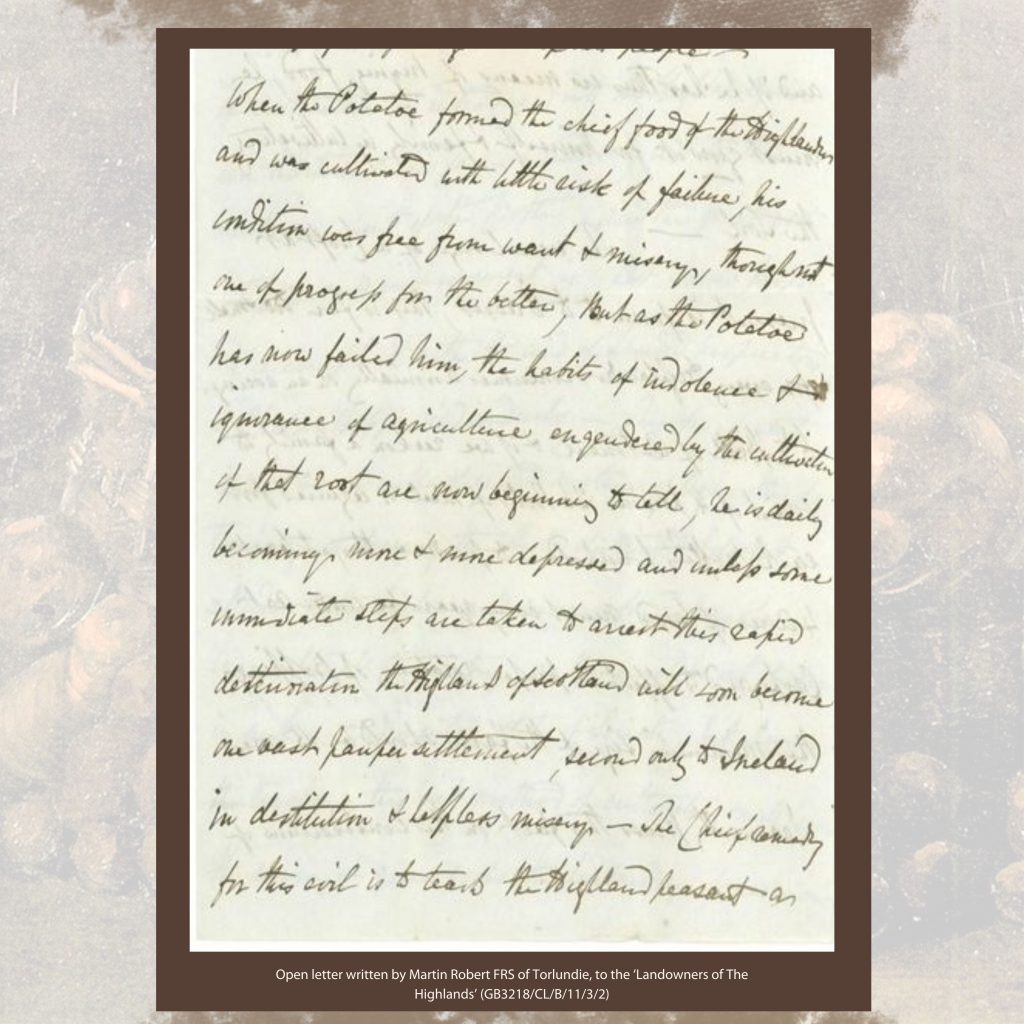 people —
When the Potatoe formed the chief food of the Highlander
and was cultivated with little risk of failure, his
condition was free from want & misery, though not
one of progress for the better, But as the Potatoe
has now failed him, the habits of indolence &
ignorance of agriculture engendered by the cultivation
of that root are now beginning to tell, he is daily
becoming more & more depressed and unless some
immediate steps are taken to arrest this rapid
deterioration the Highlands of Scotland will soon become
one vast pauper settlement, second only to Ireland
in destitution & helpless misery — The Chief remedy
for this evil is to teach the Highland peasant an
Open letter written by Martin Robert FRS of Torlundie, to the ‘Landowners of The
Highlands’ (GB3218/CL/B/11/3/2)